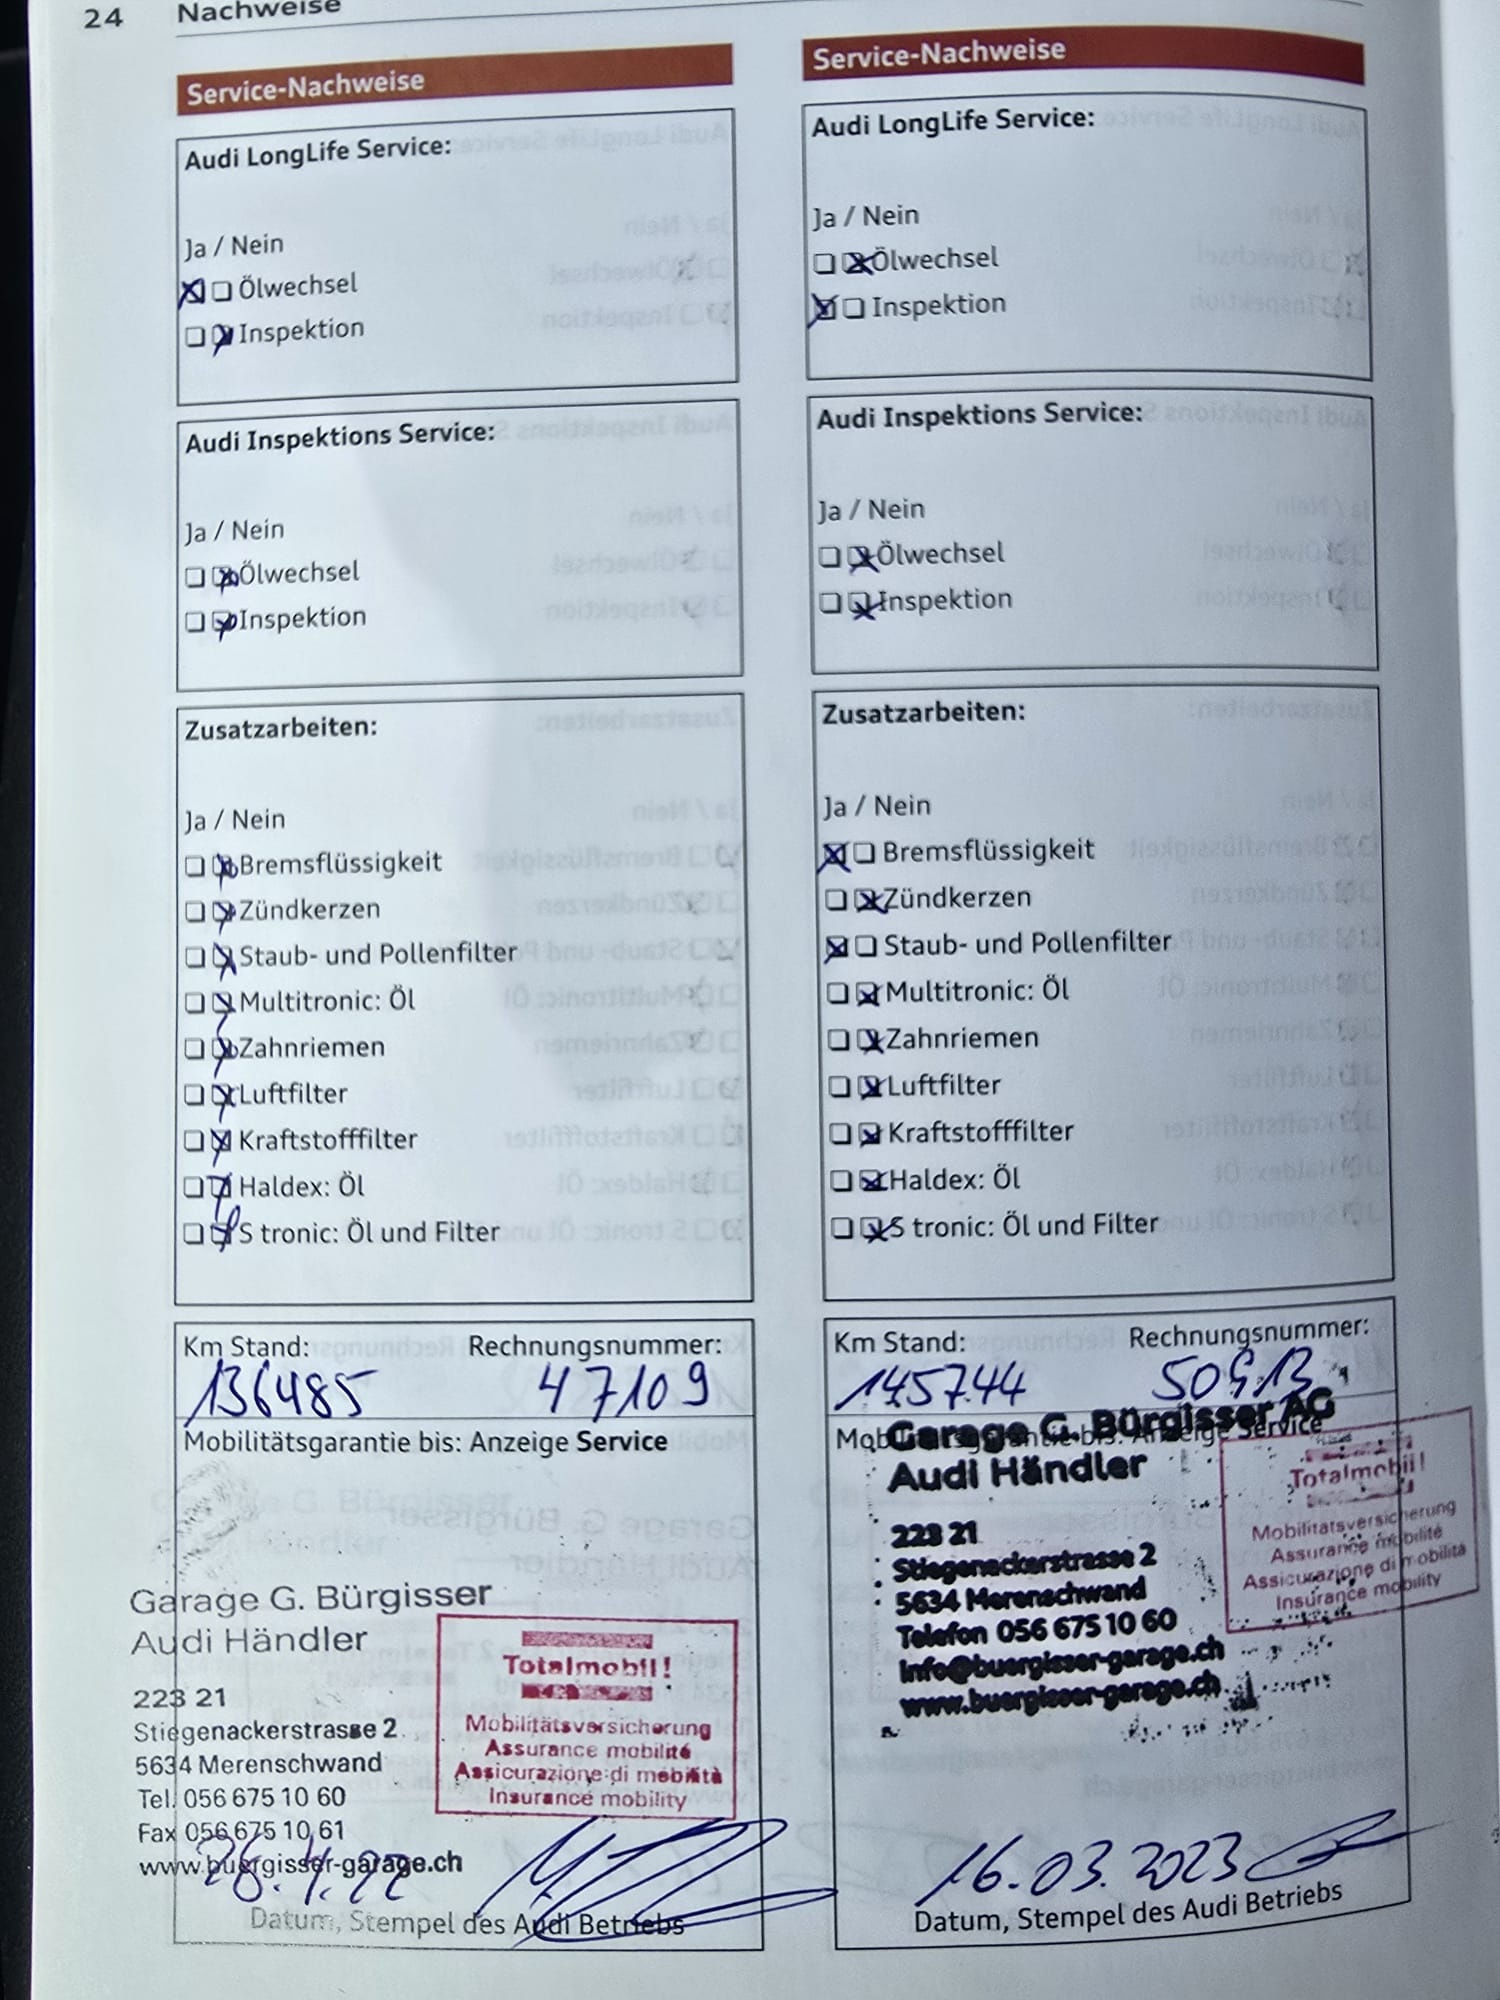 24 Nachweise
Service-Nachweise
Audi LongLife Service:
Ja / Nein
Ölwechsel
Inspektion
Audi Inspektions Service:
Ja / Nein
Ölwechsel
Inspektion
Zusatzarbeiten:
Ja / Nein
Bremsflüssigkeit
Zündkerzen
Staub- und Pollenfilter
Multitronic: Öl
Zahnriemen
Luftfilter
Kraftstofffilter
Haldex: Öl
S tronic: Öl und Filter
Km Stand: Rechnungsnummer:
136485 47109
Mobilitätsgarantie bis: Anzeige Service
Garage G. Bürgisser
Audi Händler
223 21
Stiegenackerstrasse 2
5634 Merenschwand
Tel. 056 675 10 60
Fax 056 675 10 61
www.buergisser-garage.ch
Totalmobil!
Mobilitätsversicherung
Assurance mobilité
Assicurazione di mobilità
Insurance mobility
26.4.22
Datum, Stempel des Audi Betriebs
Service-Nachweise
Audi LongLife Service:
Ja / Nein
Ölwechsel
Inspektion
Audi Inspektions Service:
Ja / Nein
Ölwechsel
Inspektion
Zusatzarbeiten:
Ja / Nein
Bremsflüssigkeit
Zündkerzen
Staub- und Pollenfilter
Multitronic: Öl
Zahnriemen
Luftfilter
Kraftstofffilter
Haldex: Öl
S tronic: Öl und Filter
Km Stand: Rechnungsnummer:
145744
Mobilitätsgarantie bis: Anzeige Service
Garage G. Bürgisser AG
Audi Händler
223 21
Stiegenackerstrasse 2
5634 Merenschwand
Telefon 056 675 10 60
info@buergisser-garage.ch
www.buergisser-garage.ch
Totalmobil!
Mobilitätsversicherung
Assurance mobilité
Assicurazione di mobilità
Insurance mobility
16.03.2023
Datum, Stempel des Audi Betriebs